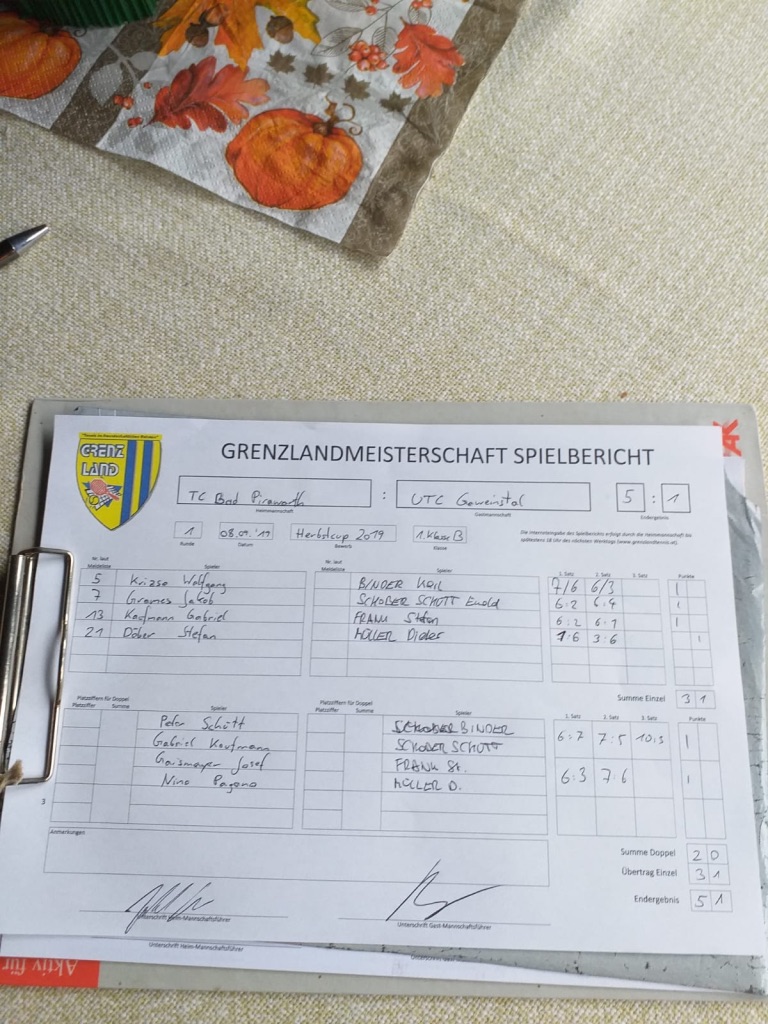 GRENZ
LAND
GRENZLANDMEISTERSCHAFT SPIELBERICHT
TC Bad Pirawarth : UTC Gaweinstal 5 : 1
Heimmannschaft Gastmannschaft Endergebnis
1 08.09.'19 Herbstcup 2019 1. Klasse B
Runde Datum Bewerb Klasse
Die Interneteingabe des Spielberichts erfolgt durch die Heimmannschaft bis
spätestens 18 Uhr des nächsten Werktags (www.grenzlandtennis.at).
Nr. laut Meldeliste Spieler Nr. laut Meldeliste Spieler 1. Satz 2. Satz 3. Satz Punkte
5 Krizso Wolfgang BINDER 7/6 6/3 1
7 Grames Jakob SCHOBER SCHÜTT Ewald 6:2 6:4 1
13 Kaufmann Gabriel FRANK Stefan 6:2 6:1 1
21 Döber Stefan MÜLLER Dieter 1:6 3:6 1
Summe Einzel 3 1
Platzziffern für Doppel Platzziffern für Doppel
Platzziffer Summe Spieler Platzziffer Summe Spieler 1. Satz 2. Satz 3. Satz Punkte
Peter Schütt BINDER 6:7 7:5 10:3 1
Gabriel Kaufmann SCHOBER SCHÜTT
Gaismayer Josef FRANK St. 6:3 7:6 1
Nino Pagano MÜLLER D.
3
Anmerkungen
Summe Doppel 2 0
Übertrag Einzel 3 1
Endergebnis 5 1
Unterschrift Heim-Mannschaftsführer Unterschrift Gast-Mannschaftsführer
Unterschrift Heim-Mannschaftsführer Unterschrift Gast-Mannschaftsführer
Aktiv für